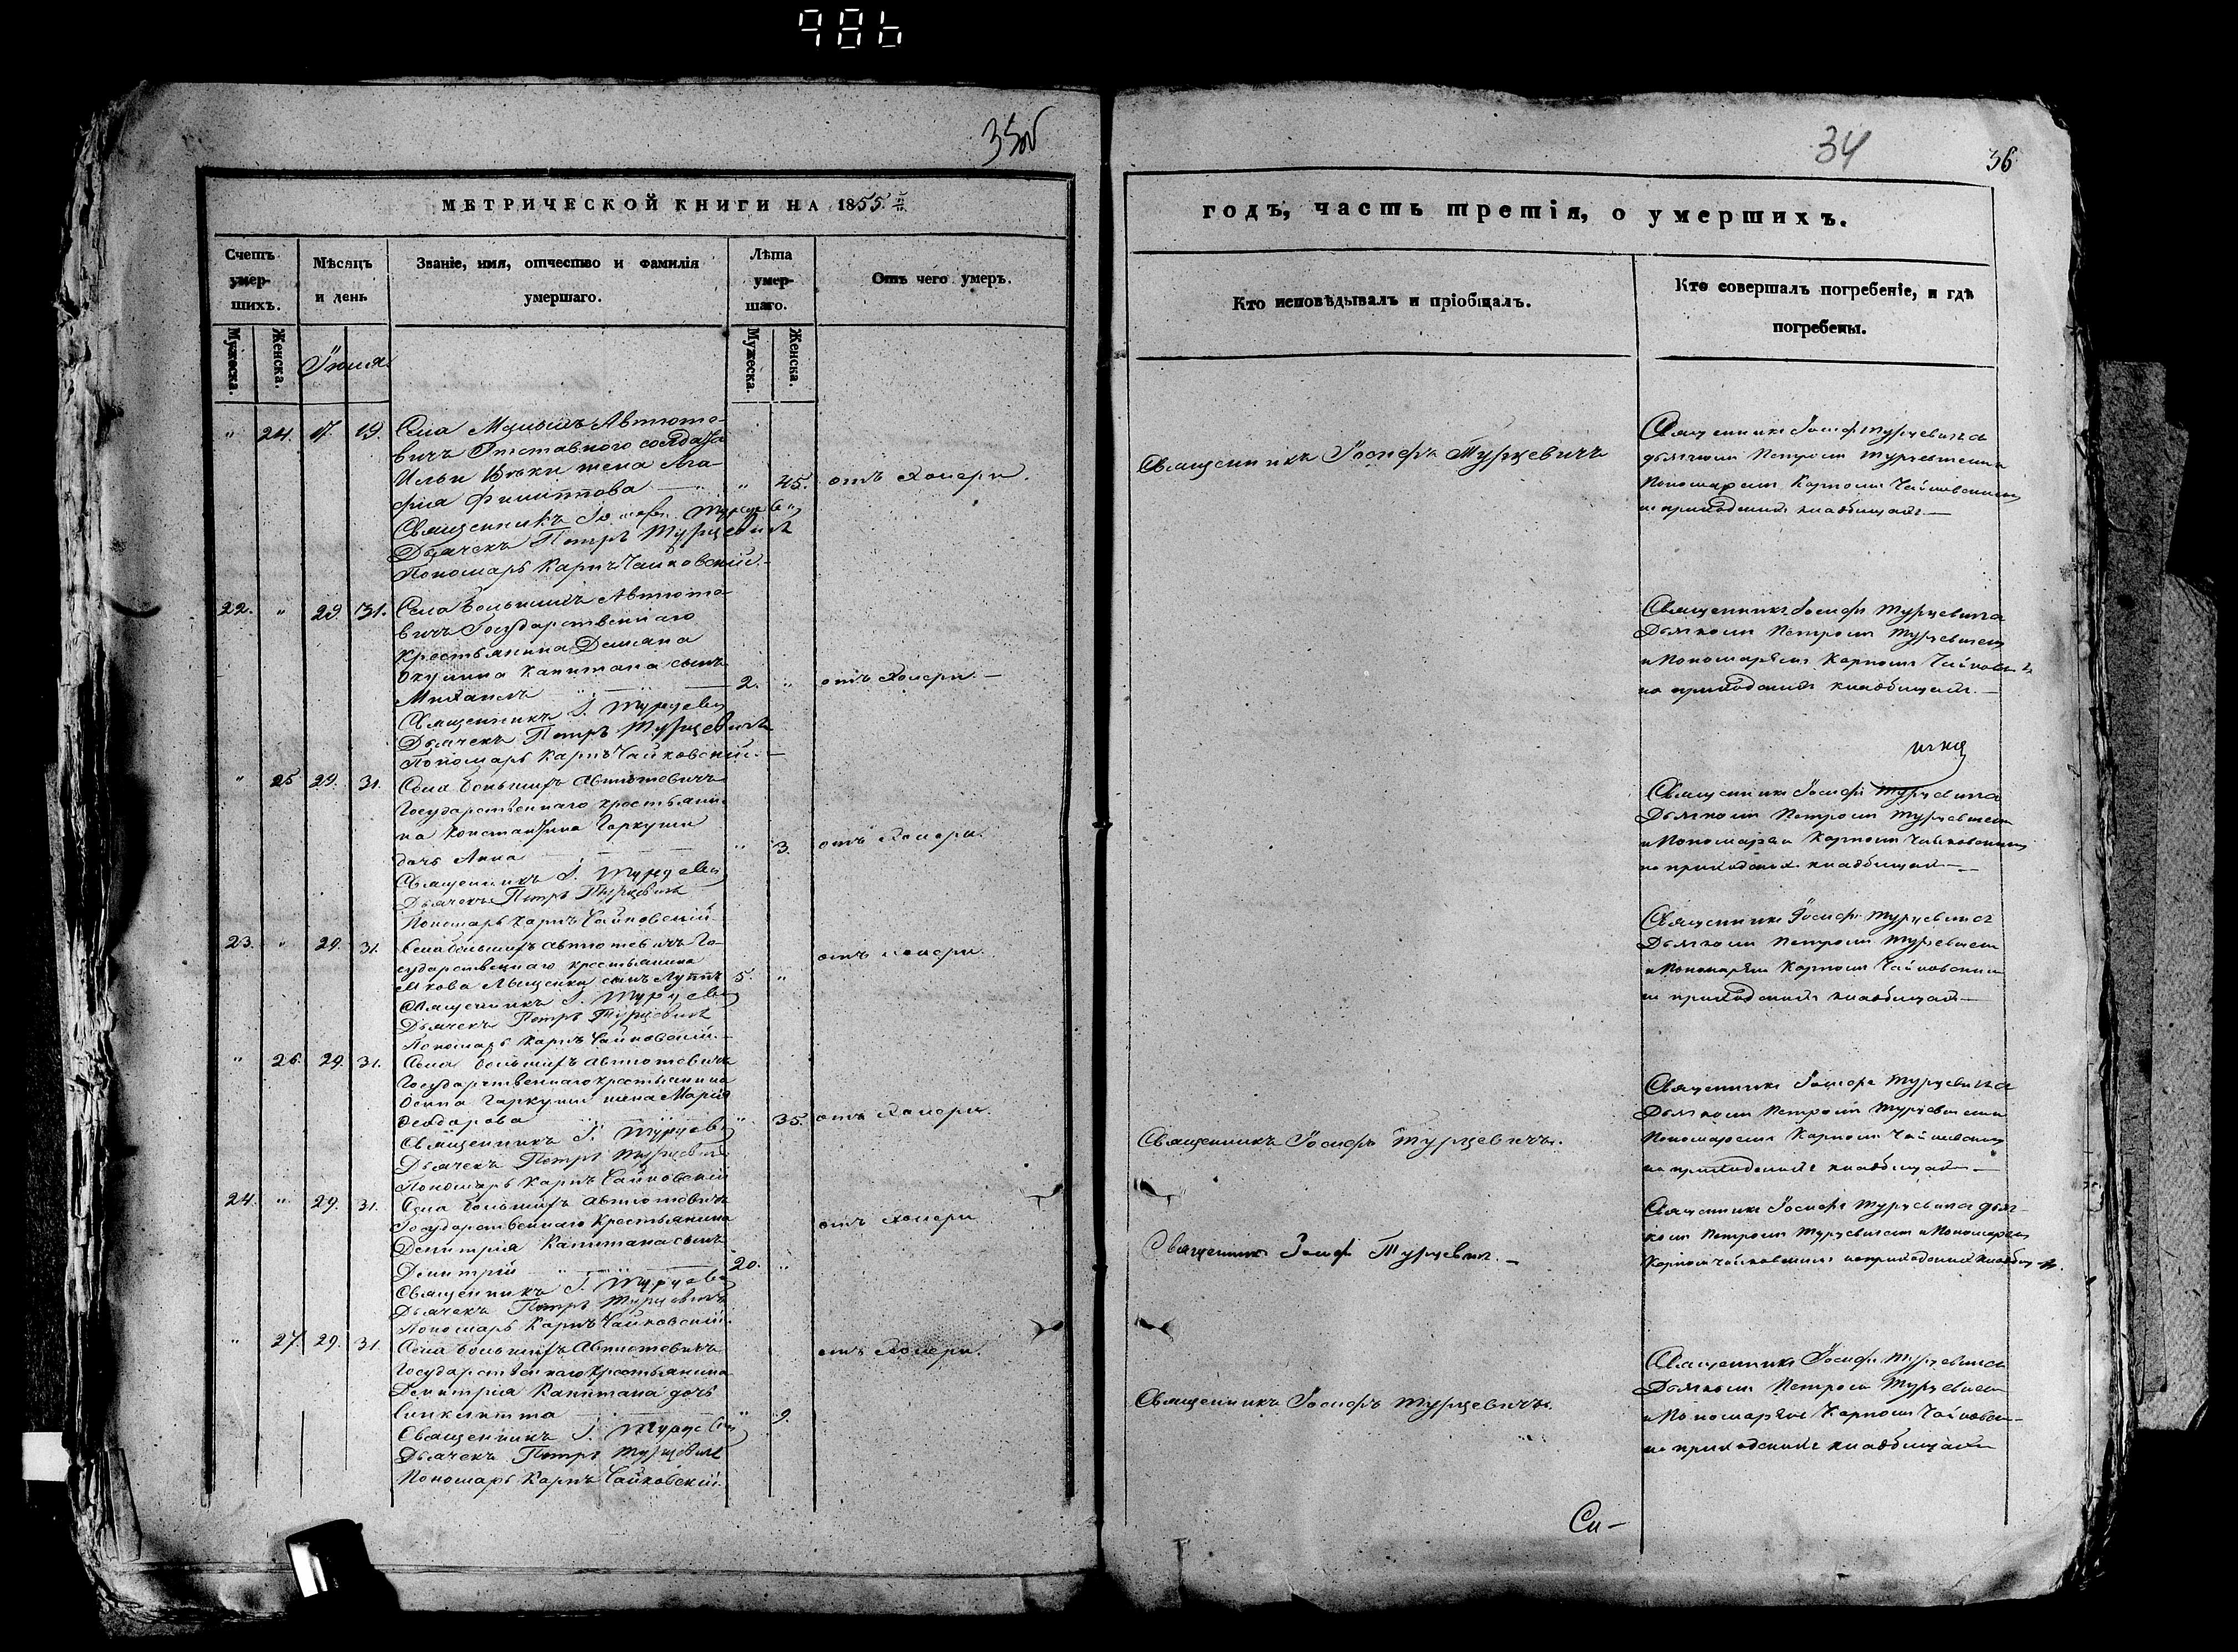 986
35об
МЕТРИЧЕСКОЙ КНИГИ НА 1855.й
Счетъ умер-шихъ.
Мѣсяцъ и день
Званіе, имя, отчество и фамилія умершаго.
Лѣта умер-шаго.
Отъ чего умеръ.
Мужеска.
Женска.
Мужеска.
Женска.
" 24. 17. 19. Села Малыхъ Автюто-
вичъ Отставного солдата
Ильи жена Ага-
фия Филиппова " 45. отъ Холеры.
Священникъ Іосифъ Турцеви
Дьячекъ Петръ Турцевичъ
Пономарь Карпъ Чайковскій.
22. " 29. 31. Села Большихъ Автюто-
вичъ Государственнаго
Крестьянина Демяна
Капитана сынъ
Михаилъ 2. " отъ Холеры.
Священникъ І. Турцеви
Дьячекъ Петръ Турцевичъ
Пономарь Карпъ Чайковскій.
" 25 29. 31. Села Большихъ Автютевичъ
Государственнаго крестьяни-
на Константина Гаркуши
дочь Анна " 3. отъ Холеры.
Священникъ І. Турцеви
Дьячекъ Петръ Турцевичъ
Пономарь Карпъ Чайковскій
23. " 29. 31. Села Большихъ Автютевичъ Го-
сударственнаго крестьянина
сынъ 5. " отъ Холеры.
Священникъ І. Турцеви
Дьячекъ Петръ Турцевичъ
Пономарь Карпъ Чайковскій
" 26. 29. 31. Села Большихъ Автютевичъ
Государственнаго крестьянина
Осипа Гаркуши жена Марія
Феодорова " 35. отъ Холеры.
Священникъ І. Турцеви
Дьячекъ Петръ Турцевичъ
Пономарь Карпъ Чайковскій
24. " 29. 31. Села Большихъ Автютевичъ
Государственнаго Крестьянина
Димитрія Капитана сынъ
Димитрій 20. " отъ Холеры
Священникъ І. Турцеви
Дьячекъ Петръ Турцевичъ
Пономарь Карпъ Чайковскій.
" 27. 29. 31. Села Большихъ Автютевичъ
Государственнаго Крестьянина
Димитрія Капитана дочь
" 9. отъ Холеры.
Священникъ І. Турцеви
Дьячекъ Петръ Турцевичъ
Пономарь Карпъ Чайковскій.
34
36
годъ, часть третія, о умершихъ.
Кто исповѣдывалъ и пріобщалъ.
Кто совершалъ погребеніе, и гдѣ погребены.
Священникъ Іосифъ Турцевичъ
Священникъ Іосифъ Турцевичъ.
Священникъ Іосифъ Турцевичъ.
Священникъ Іосифъ Турцевичъ.
Священникъ Іосифъ Турцевичъ съ
дьячкомъ Петромъ Турцевичемъ
Пономаремъ Карпомъ Чайковскимъ
на приходскомъ кладбищѣ
Священникъ Іосифъ Турцевичъ съ
Дьячкомъ Петромъ Турцевичемъ
и Пономаремъ Карпомъ
на приходскомъ кладбищѣ.
Священникъ Іосифъ Турцевичъ съ
Дьячкомъ Петромъ Турцевичемъ
и Пономаремъ Карпомъ Чайковскимъ
на приходскомъ кладбищѣ
Священникъ Іосифъ Турцевичъ съ
Дьячкомъ Петромъ Турцевичемъ
и Пономаремъ Карпомъ Чайковскимъ
на приходскомъ кладбищѣ
Священникъ Іосифъ Турцевичъ съ
Дьячкомъ Петромъ Турцевичемъ
Пономаремъ Карпомъ Чайковскимъ
на приходскомъ кладбищѣ
Священникъ Іосифъ Турцевичъ съ дьяч-
комъ Петромъ Турцевичемъ и Пономаремъ
Карпомъ Чайковскимъ на приходскомъ
Священникъ Іосифъ Турцевичъ съ
Дьячкомъ Петромъ Турцевичемъ
и Пономаремъ Карпомъ
на приходскомъ кладбищѣ
Си-